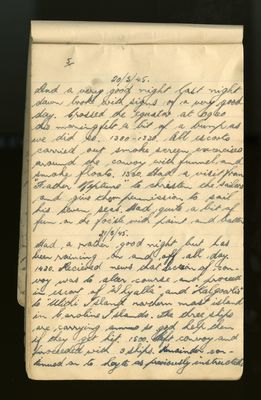 5
20/3/45.
Had a very good night last night
dawn broke with signs of a very good
day. Crossed the Equator at 0900
this morning felt a bit of a bump as
we did so. 1300 - 1330. All escorts
carried out smoke screen exercises
around the convoy with funnel and
smoke floats. 1500 Had a visit from
"Father Neptune" to christen the sailors
and give them permission to sail
his seven seas. Had quite a bit of
fun on the focsle with paint and batter
21/3/45.
Had a rather good night but has
been raining on and off all day.
1430. Recieved news that section of con-
voy was to alter course and proceed
in escort of and
to Ulithi Island northern most island
in Caroline Islands. The three ships
are carrying ammo so god help them
if they get hit. 1500. Left convoy and
proceeded with 3 ships. Remainder con-
tinued on to Leyte as previously instructed